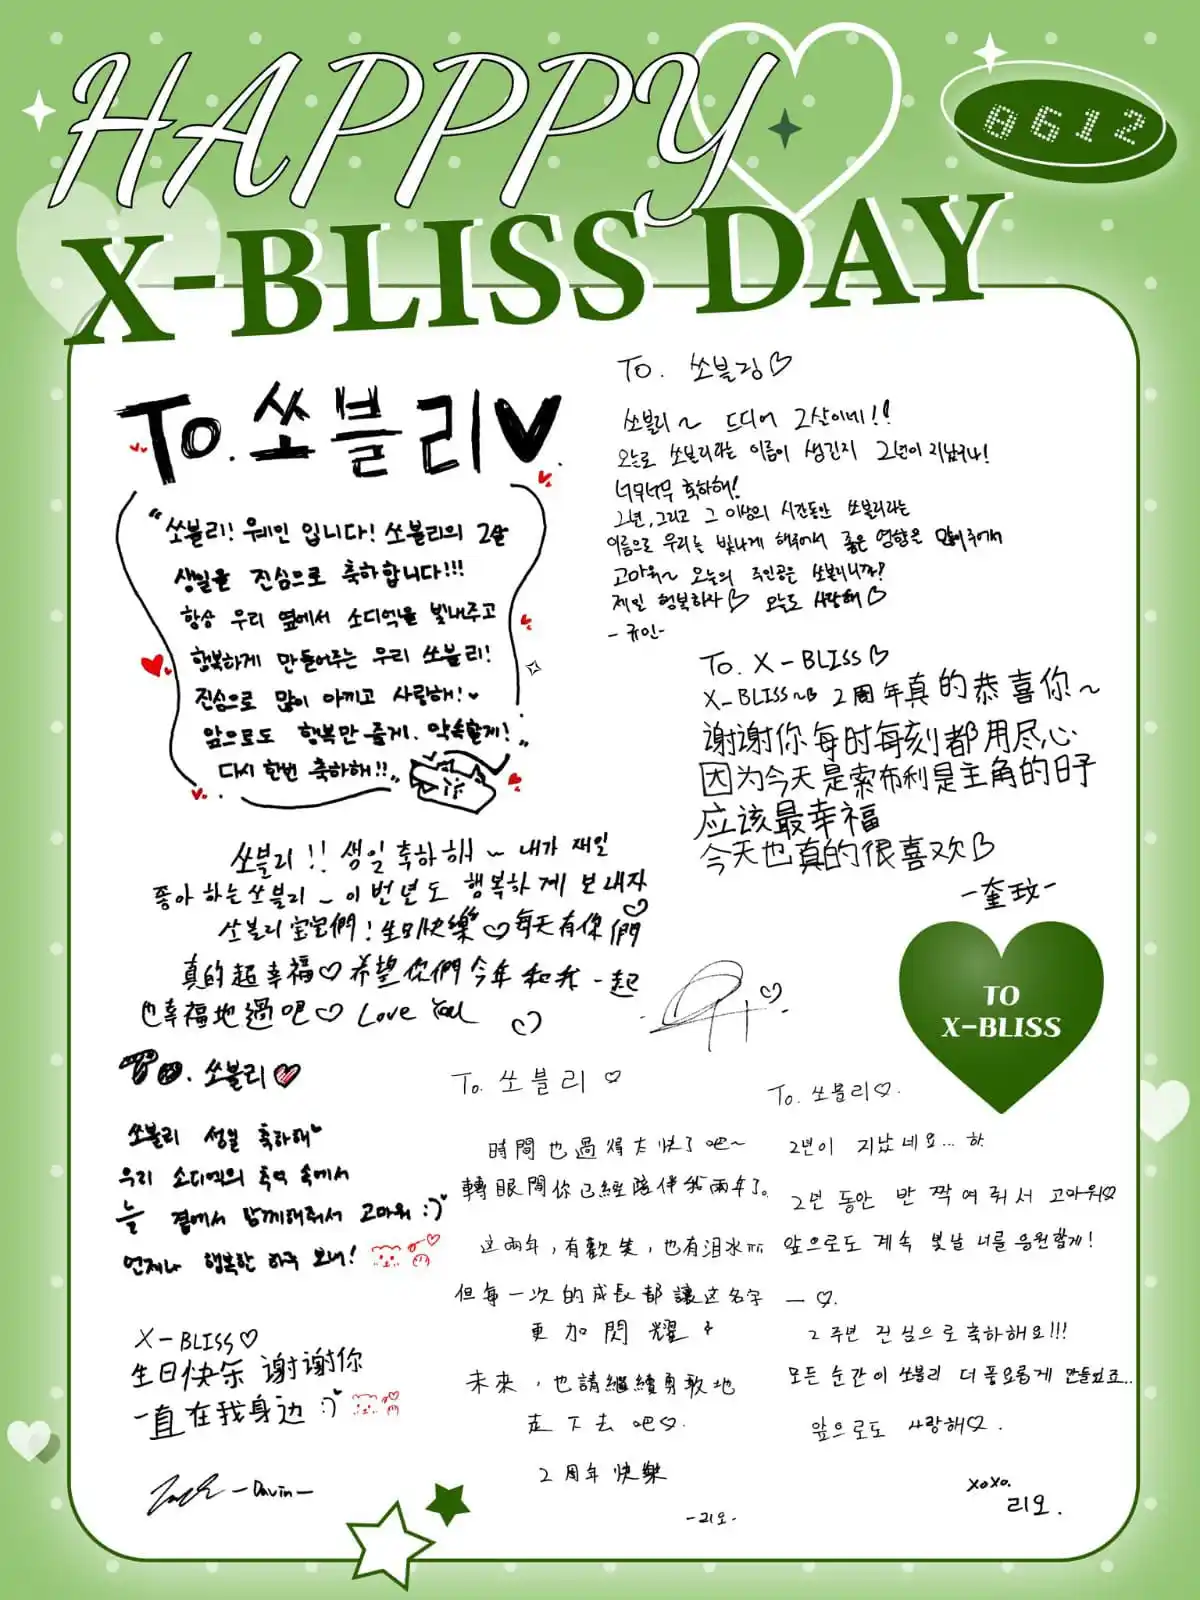 HAPPPY
0612
X-BLISS DAY
To. 쏘블리♥.
"쏘블리! 웨인 입니다! 쏘블리의 2살
생일을 진심으로 축하합니다!!!
항상 우리 옆에서 소디엑을 빛내주고
행복하게 만들어주는 우리 쏘블리!
진심으로 많이 아끼고 사랑해!♥
앞으로도 행복만 줄게. 약속할게!
다시 한번 축하해!!"
To. 쏘블링♡
쏘블리~ 드디어 2살이네!!
오늘로 쏘블리라는 이름이 생긴지 2년이 지났구나!
너무너무 축하해!
2년, 그리고 그 이상의 시간동안 쏘블리라는
이름으로 우리는 빛나게 해주어서 좋은 영향을 만들어주어서
고마워~ 오늘의 주인공은 쏘블리니까!
제일 행복하자♡ 오늘도 사랑해♡
-규민-
To. X-BLISS♡
X-BLISS~♡ 2周年真的恭喜你~
谢谢你每时每刻都用尽心
因为今天是索布利是主角的日子
应该最幸福
今天也真的很喜欢♡
-奎玟-
쏘블리!! 생일 축하해~ 내가 제일
좋아하는 쏘블리~ 이번년도 행복하게 보내자♡
쏘블리宝宝們! 生日快樂♡每天有你們
真的超幸福♡希望你們今年和我一起
也幸福地過吧♡ Love You
TO
X-BLISS
To. 쏘블리♥
쏘블리 생일 축하해♥
우리 소디엑의 추억 속에서
늘 곁에서 함께해줘서 고마워 :)♥
언제나 행복한 하루 보내!
X-BLISS♡
生日快乐 谢谢你
一直在我身边 :)♥
-Davin-
To. 쏘블리 ♡
時間也過得太快了吧~
轉眼間你已經陪伴我兩年了。
这兩年，有歡笑，也有泪水
但每一次的成長都讓这名字
更加閃耀
未來，也請繼續勇敢地
走下去吧♡.
2周年快樂
-리오-
To. 쏘블리♡.
2년이 지났네요... 하
2년 동안 반짝여줘서 고마워♡
앞으로도 계속 빛날 너를 응원할게!
— ♡.
2주년 진심으로 축하해요!!!
모든 순간이 쏘블리 더 풍요롭게 만들죠..
앞으로도 사랑해♡.
xoxo.
리오.